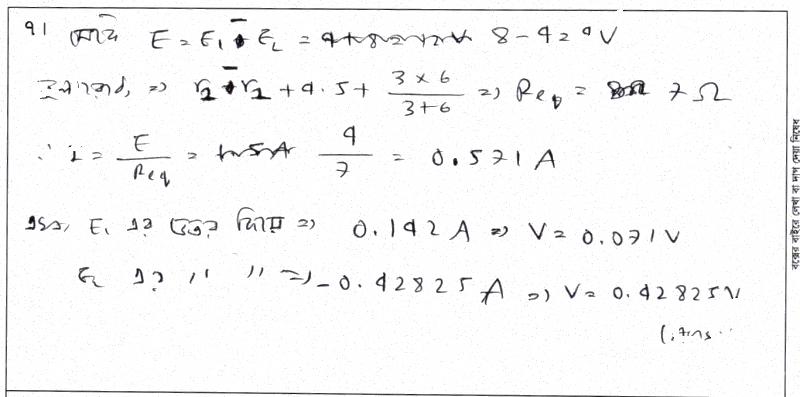 ৭। মোট E = E₁ - E₂ = 8 - 4 = 4V
⇒ r₂ - r₁ + 4.5 + \frac{3 × 6}{3+6} ⇒ R_{eq} = 7 Ω
∴ I = \frac{E}{R_{eq}} = \frac{4}{7} = 0.571 A
E₁ এর ভেতর দিয়ে ⇒ 0.142 A ⇒ V = 0.071 V
E₂ এর " " ⇒ -0.42825 A ⇒ V = 0.42825 V
(Ans.
বক্সের বাইরে লেখা বা দাগ দেয়া নিষেধ